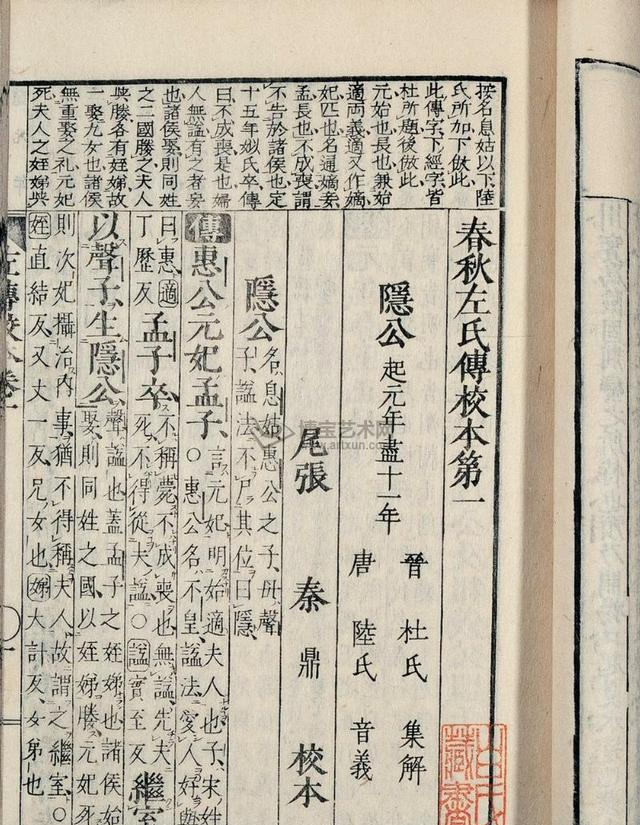 按名息姑以下陸
氏所加下倣此
此傳字下經字皆
杜所題後倣此
元始也長也兼始
適兩義適又作嫡
妃匹也名通嫡妾
孟長也不成喪謂
不告於諸侯也定
十五年姒氏卒傳
曰不成喪是也婦
人無謚有之者妄
也諸侯娶則同姓
之二國媵之夫人
與媵各有姪娣故
一娶九女也諸侯
無重娶之礼元妃
死夫人之姪娣與
春秋左氏傳校本第一
隱公 起元年盡十一年
晉 杜氏 集解
唐 陸氏 音義
尾張 秦鼎 校本
隱公 名息姑惠公之子母聲
子謚法不尸其位曰隱
傳惠公元妃孟子 言元妃明始適夫人也子宋姓
〇惠公名不皇謚法愛人好與
曰惠適
丁歷反
孟子卒 不稱薨不成喪也無謚先夫
死不得從夫謚〇謚實至反
繼室
以聲子生隱公 聲謚也蓋孟子之姪娣也諸侯始
娶則同姓之國以姪娣媵元妃死
則次妃攝治内事猶不得稱夫人故謂之繼室〇
姪直結反又丈一反兄女也娣大計反女弟也
藏書
博宝艺术网
www.artxun.com